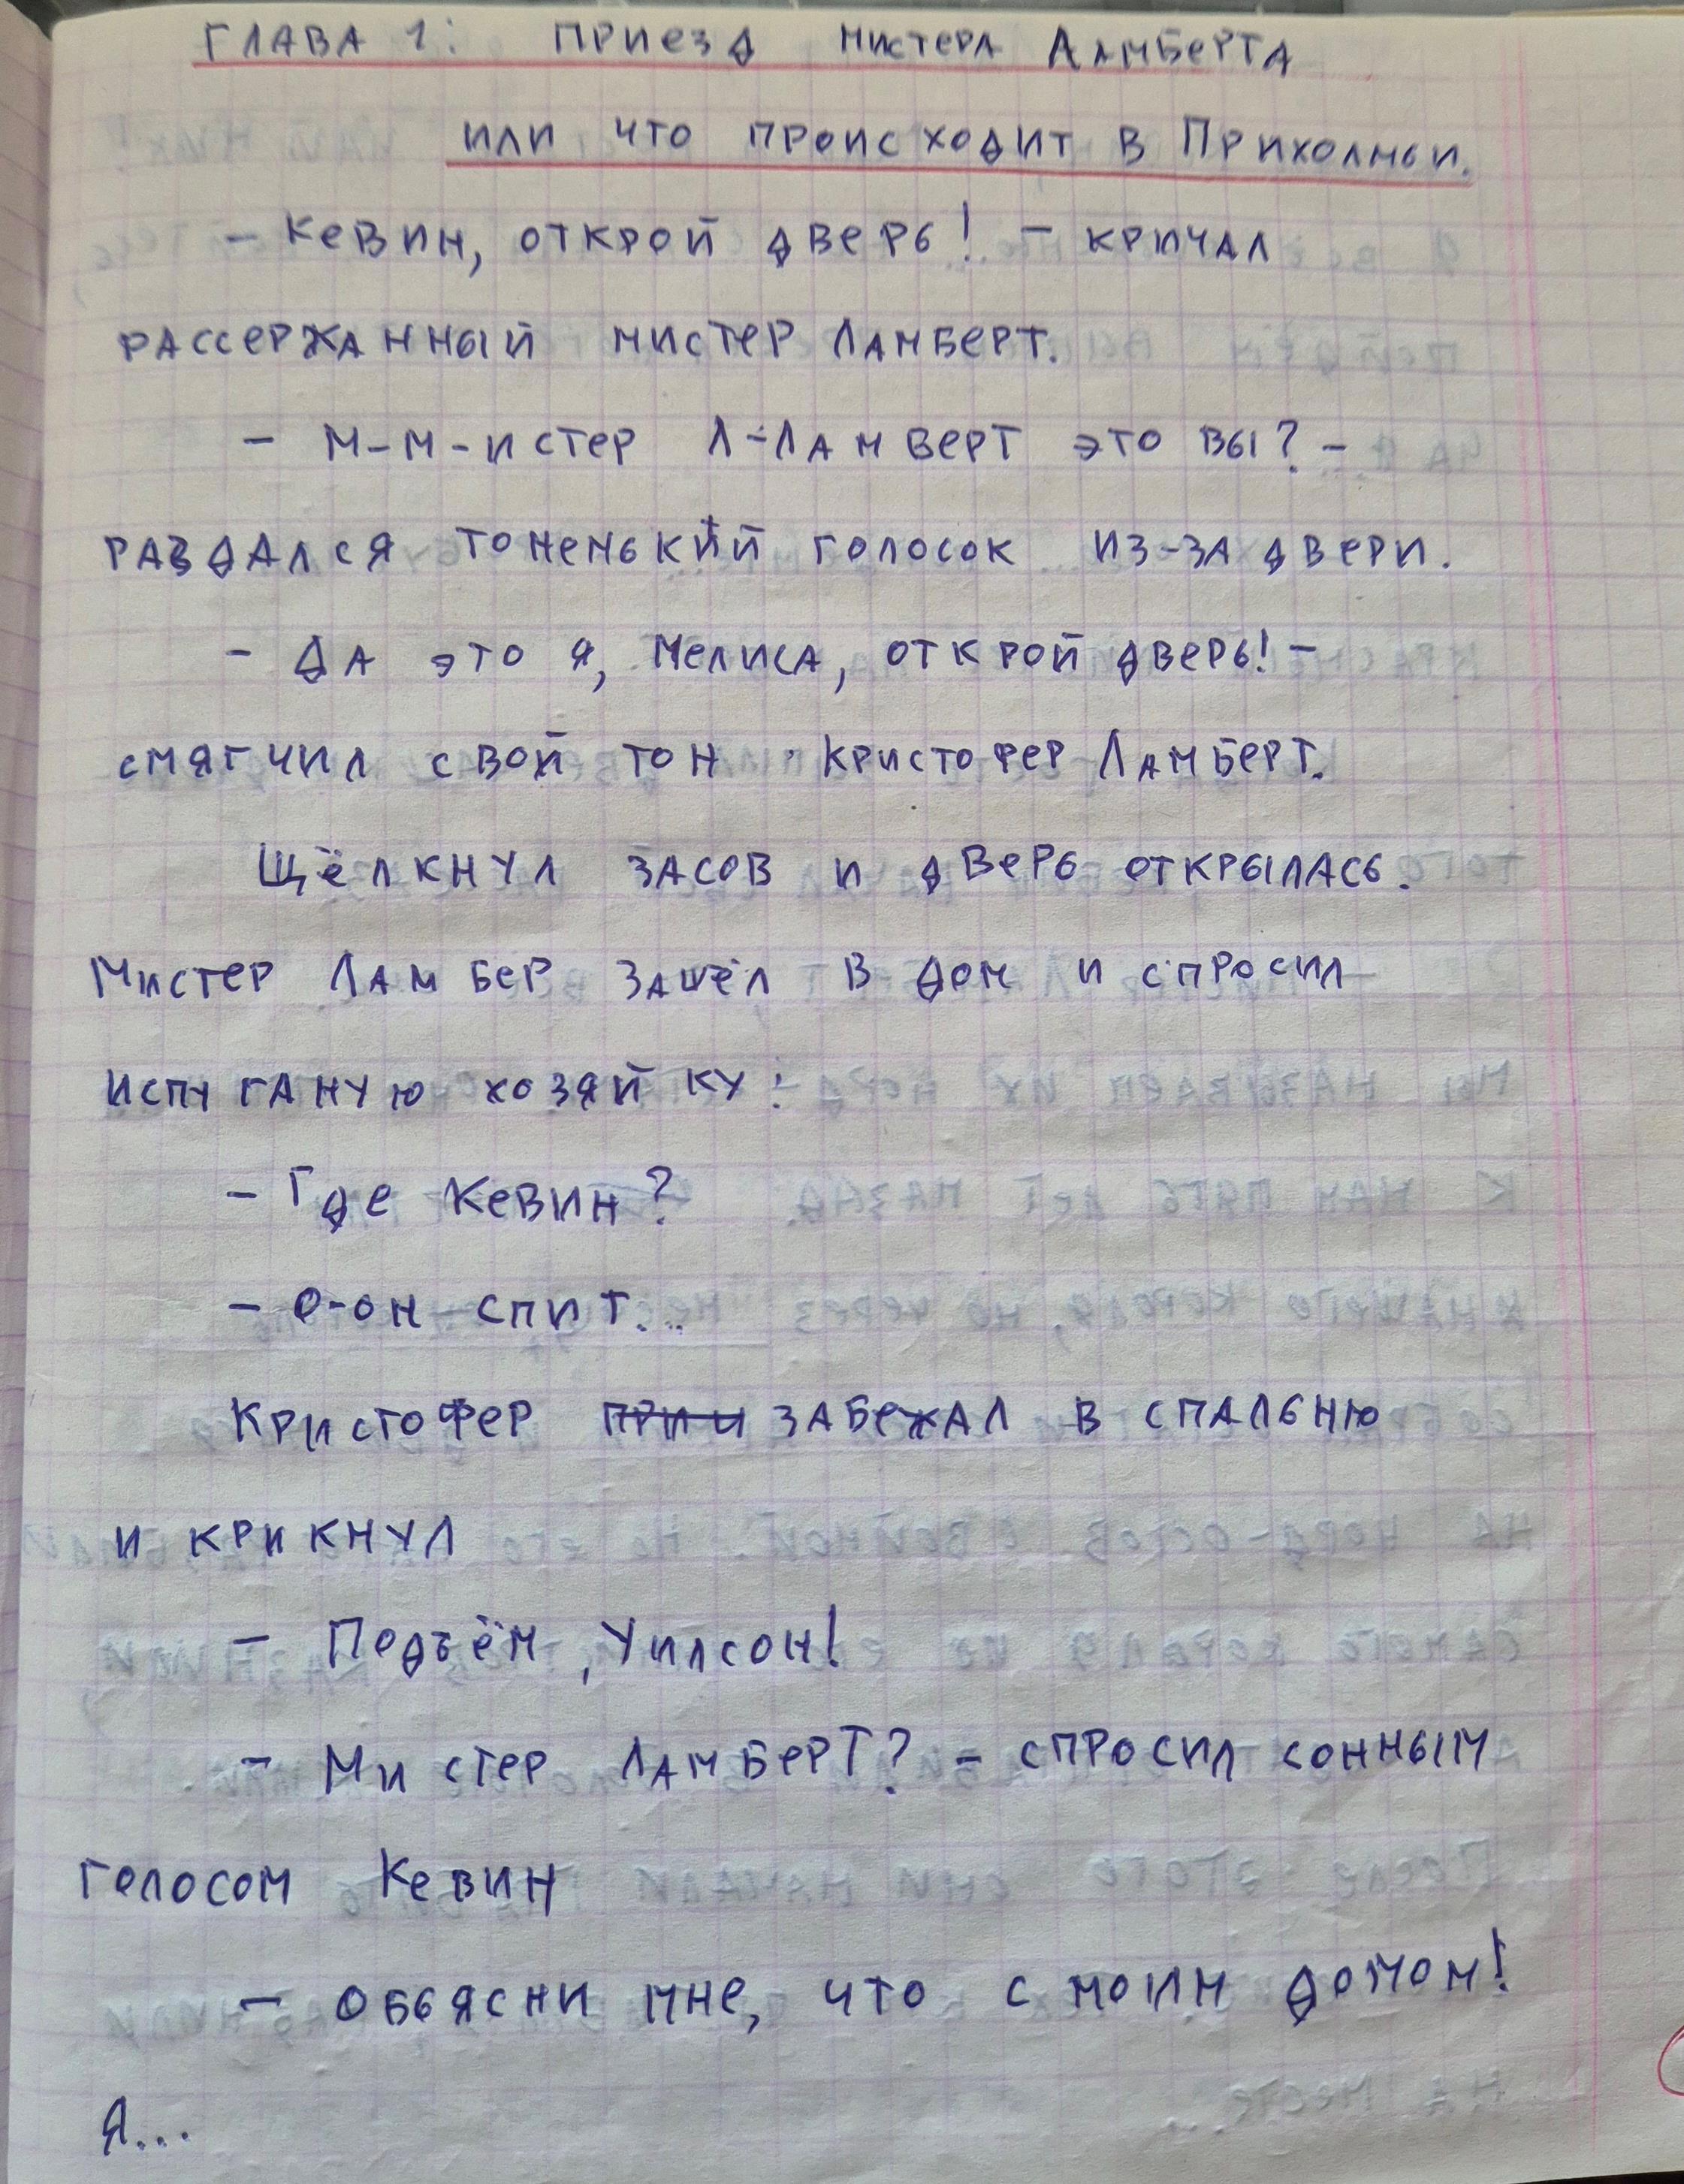 ГЛАВА 1: ПРИЕЗД МИСТЕРА ЛАМБЕРТА
ИЛИ ЧТО ПРОИСХОДИТ В ПРИХОЛМЬИ.
– КЕВИН, ОТКРОЙ ДВЕРЬ! – КРИЧАЛ
РАССЕРЖАННЫЙ МИСТЕР ЛАМБЕРТ.
– М-М-ИСТЕР Л-ЛАМВЕРТ ЭТО ВЫ? –
РАЗДАЛСЯ ТОНЕНЬКИЙ ГОЛОСОК ИЗ-ЗА ДВЕРИ.
– ДА ЭТО Я, МЕЛИСА, ОТКРОЙ ДВЕРЬ! –
СМЯГЧИЛ СВОЙ ТОН КРИСТОФЕР ЛАМБЕРТ.
ЩЁЛКНУЛ ЗАСОВ И ДВЕРЬ ОТКРЫЛАСЬ.
МИСТЕР ЛАМБЕР ЗАШЁЛ В ДОМ И СПРОСИЛ
ИСПУГАНУЮ ХОЗЯЙКУ:
– ГДЕ КЕВИН?
– О-ОН СПИТ...
КРИСТОФЕР ПРИ ЗАБЕЖАЛ В СПАЛЬНЮ
И КРИКНУЛ
– ПОДЪЁМ, УИЛСОН!
– МИСТЕР ЛАМБЕРТ? – СПРОСИЛ СОННЫМ
ГОЛОСОМ КЕВИН
– ОБЬЯСНИ МНЕ, ЧТО С МОИМ ДОМОМ!
Я...